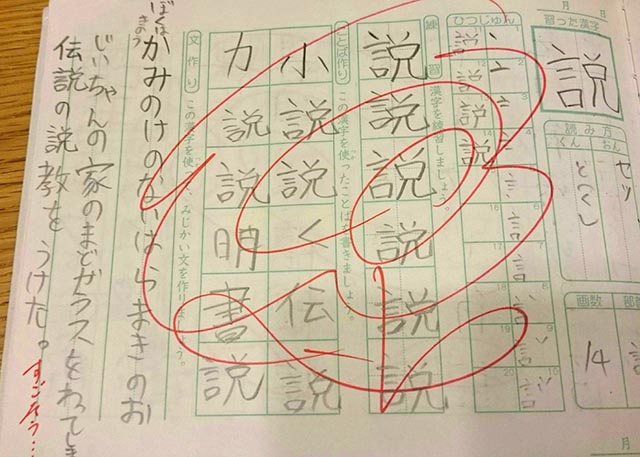 月 日
習った漢字
説
読み方
おん
くん
セツ
画数
14
ひつじゅん
練習
漢字を練習しましょう。
説説説説説説
ことば作り
この漢字を使ったことばを書きましょう。
小説説く伝説
力説説明書説
文作り
この漢字を使って、みじかい文を作りましょう。
ぼくはきのう
かみのけのないはらまきのお
じいちゃんの家のまどガラスをわってしま
伝説の説教をうけた。
すごそう…
月